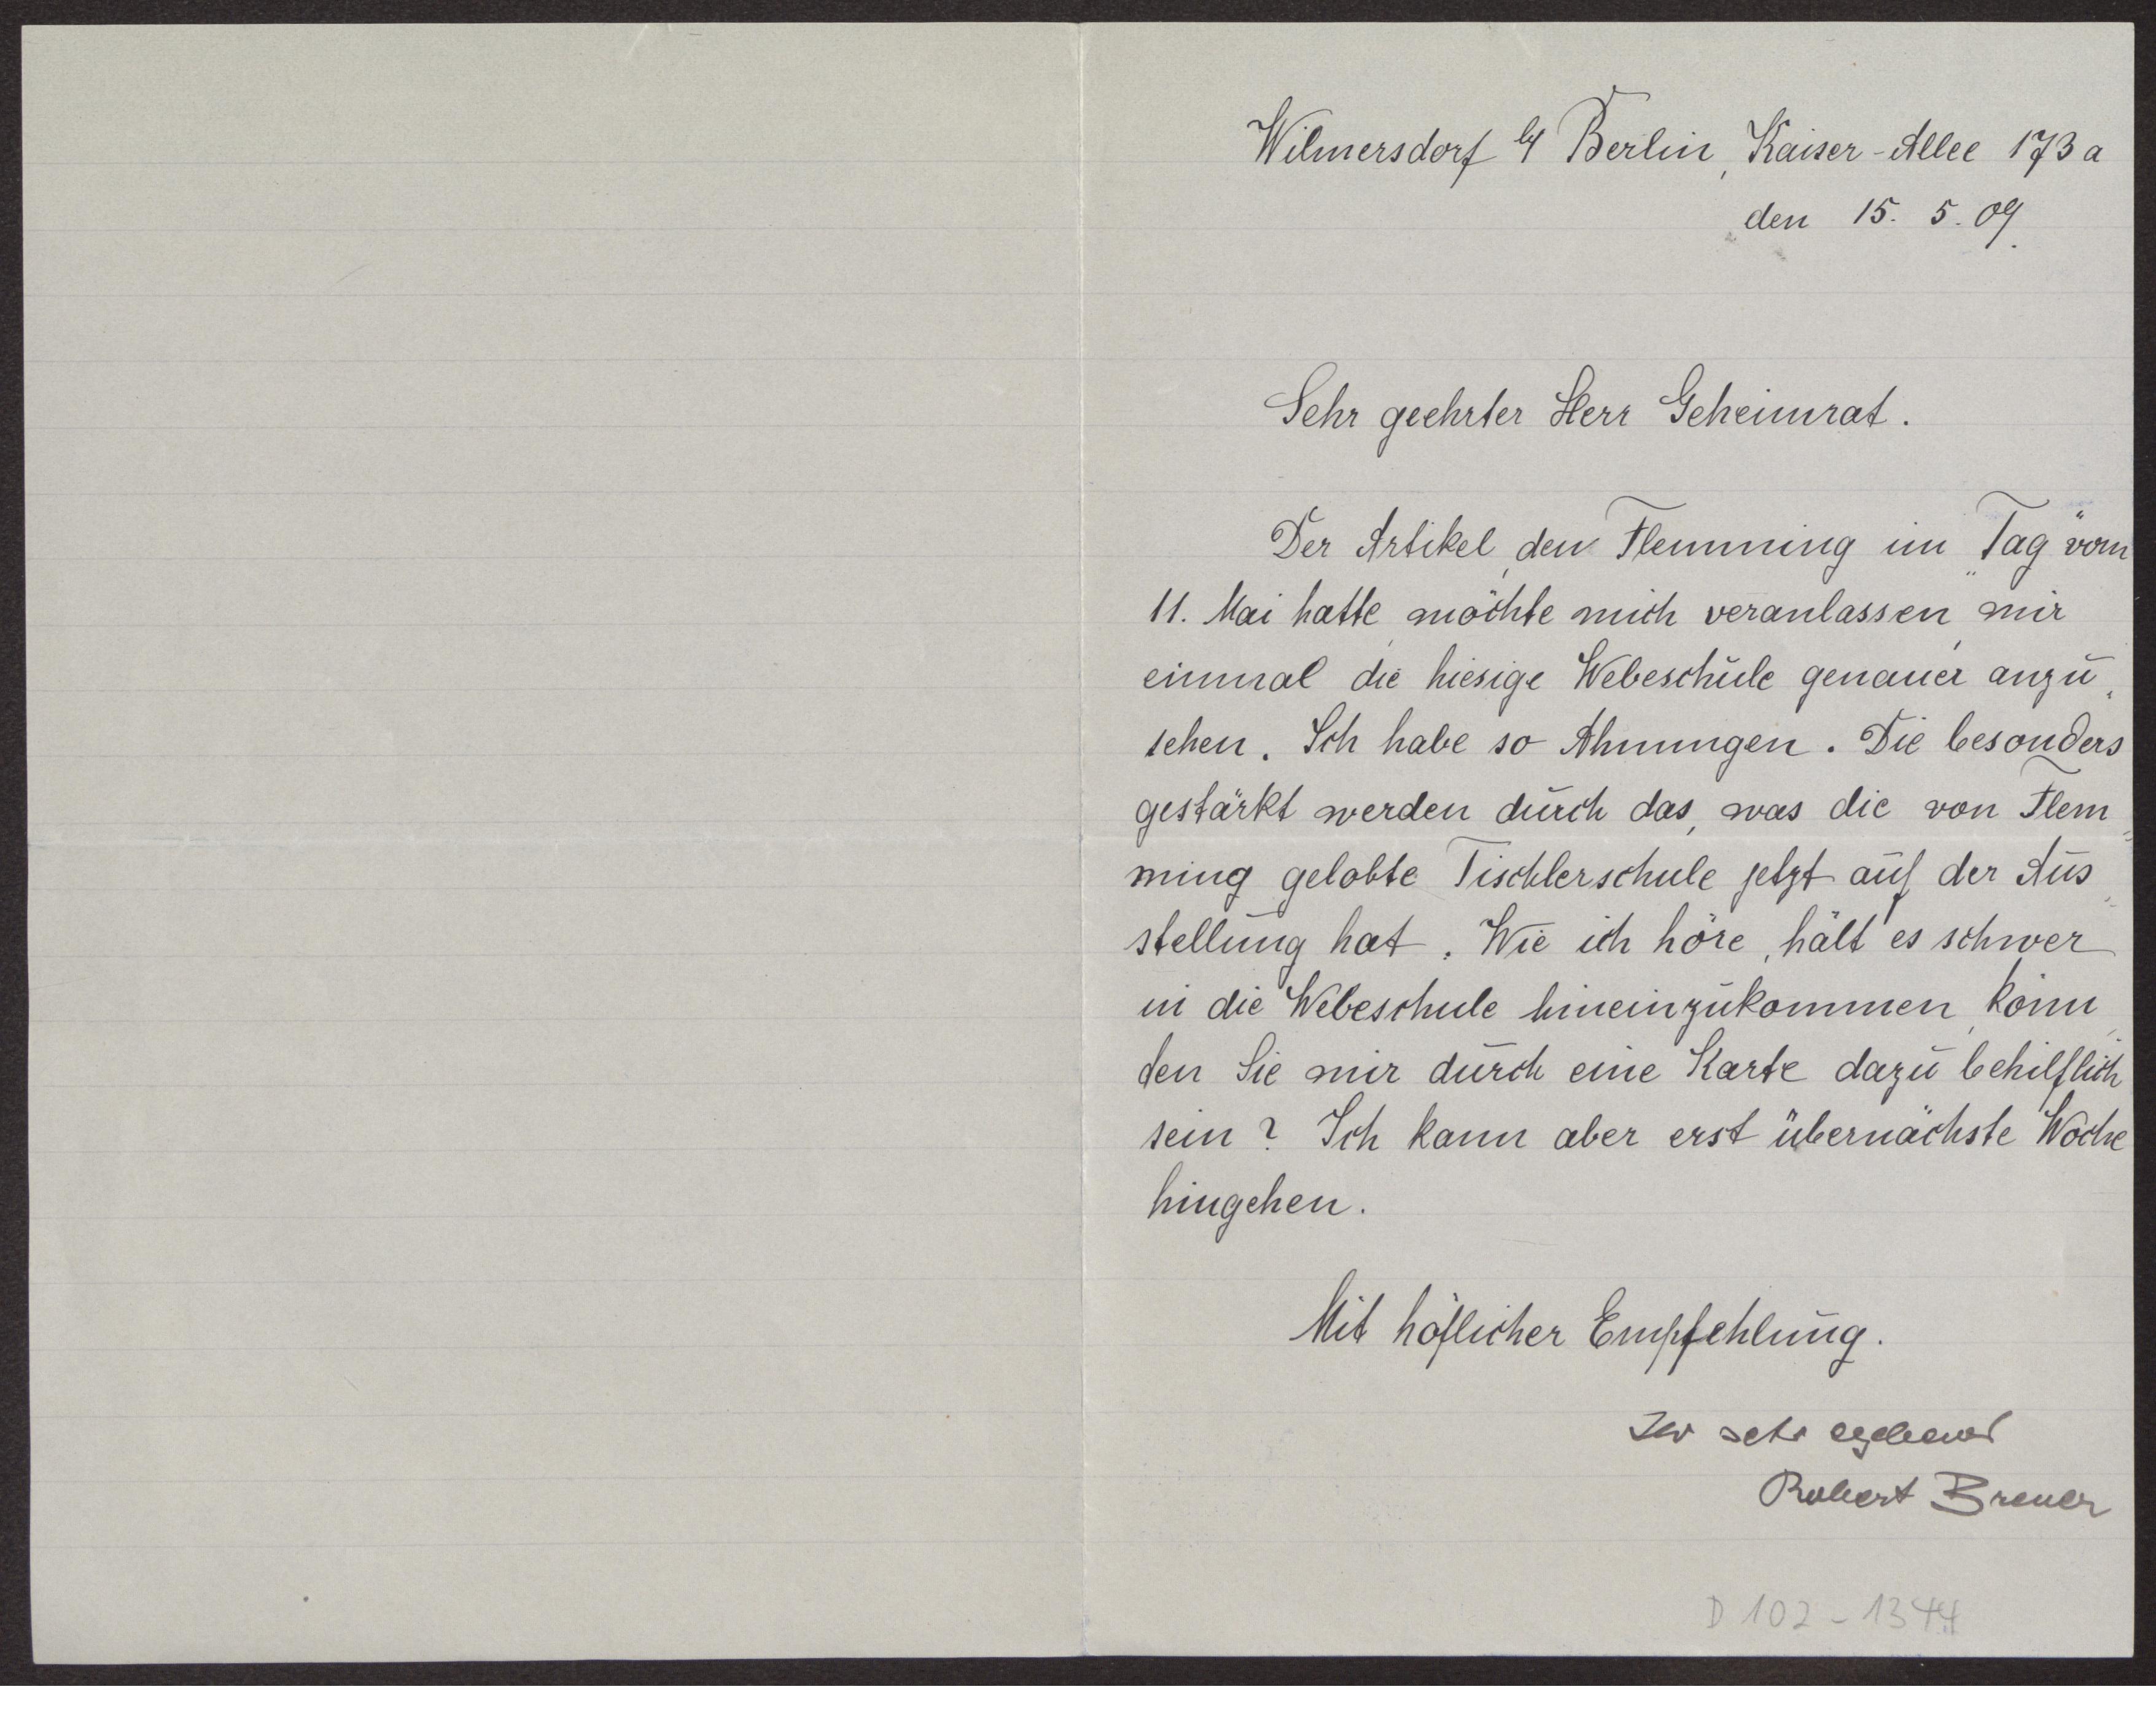 Wilmersdorf b/ Berlin, Kaiser-Allee 173a
den 15. 5. 09.
Sehr geehrter Herr Geheimrat.
Der Artikel, den Flemming im „Tag“ vom
11. Mai hatte, möchte mich veranlassen, mir
einmal die hiesige Webeschule genauer anzu-
sehen. Ich habe so Ahnungen. Die besonders
gestärkt werden durch das, was die von Flem-
ming gelobte Tischlerschule jetzt auf der Aus-
stellung hat. Wie ich höre, hält es schwer
in die Webeschule hineinzukommen, könn-
ten Sie mir durch eine Karte dazu behilflich
sein? Ich kann aber erst übernächste Woche
hingehen.
Mit höflicher Empfehlung.
Ihr sehr ergebener
Robert Breuer
D 102-1344